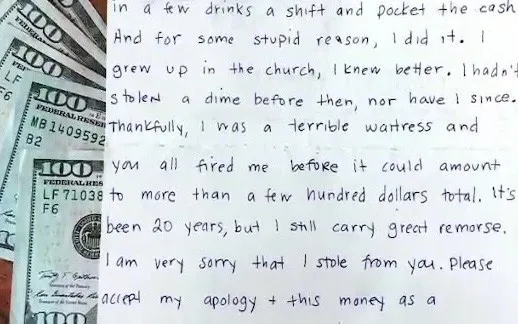 in a few drinks a shift and pocket the cash
And for some stupid reason, I did it. I
grew up in the church, I knew better. I hadn't
stolen a dime before then, nor have I since.
Thankfully, I was a terrible waitress and
you all fired me before it could amount
to more than a few hundred dollars total. It's
been 20 years, but I still carry great remorse.
I am very sorry that I stole from you. Please
accept my apology + this money as a
100
100
LF
F6
100
FEDERAL RESERVE
MB1409592
B2
100
FEDERAL RES
LF71038
F6
100